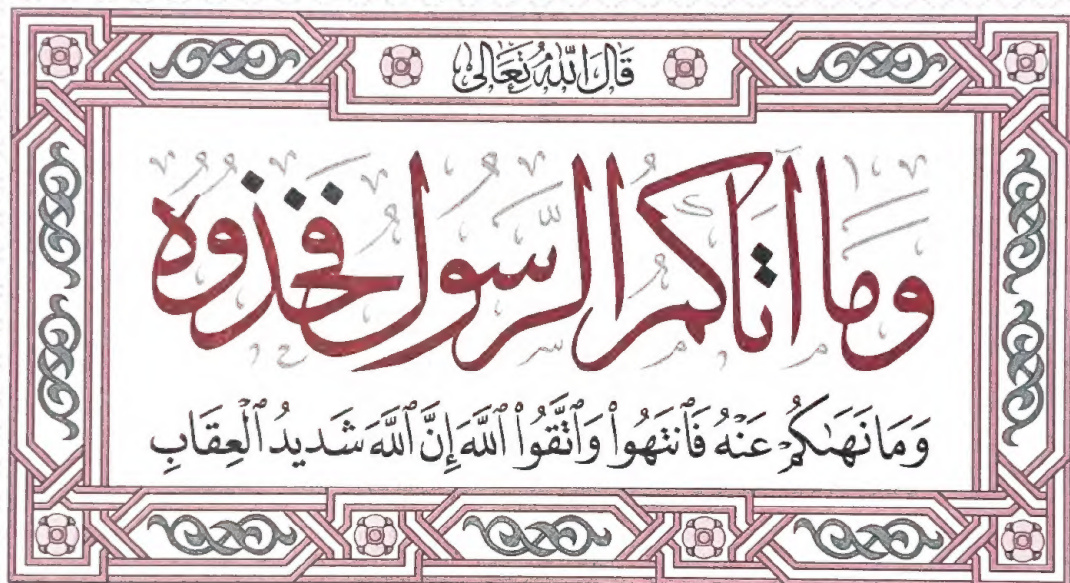 قَالَ اللّٰهُ تَعَالٰى
وما آتاكم الرسول فخذوه
وَمَا نَهَىٰكُمْ عَنْهُ فَٱنتَهُوا۟ وَٱتَّقُوا۟ ٱللَّهَ إِنَّ ٱللَّهَ شَدِيدُ ٱلْعِقَابِ